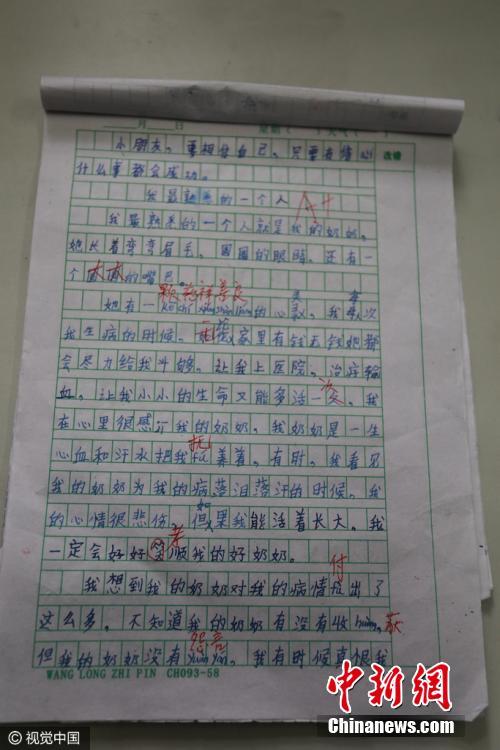 月 日 星期（ ）天气（ ）
小朋友。要相信自己。只要有信心 改错
什么事都会成功。
我最熟悉的一个人 A+
我最熟悉的一个人就是我的奶奶。
她长着弯弯眉毛。圆圆的眼睛。还有一
个大大的嘴巴。
颗慈祥善良
她有一 的心灵。我每次
我生病的时候。家里有钱无钱她都
会尽力给我斗够。让我上医院。治疗输
血。让我小小的生命又能多活一次。我
在心里很感 我的奶奶。我奶奶是一生
抚
心血和汗水把我fǔ养着。有时。我看见
我的奶奶为我的病落泪落汗的时候。我
的心情很悲伤。如果我能活着长大。我
孝
一定会好好 顺我的好奶奶。
付
我想到我的奶奶对我的病情 出了
这么多。不知道我的奶奶有没有收huò。获
怨言
但我的奶奶没有yuàn yán。我有时候真恨我
WANG LONG ZHI PIN CH093-58
中新网
Chinanews.com
视觉中国